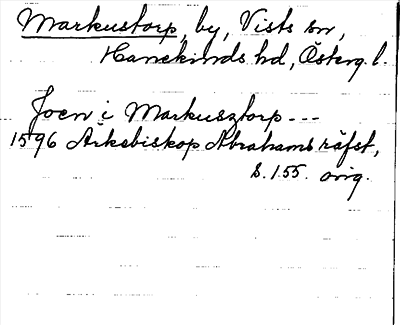 Markustorp, by, Vists sn,
Hanekinds hd, Österg. l.
Joen i Markusztorp ---
1596 Ärkebiskop Abrahams räfst,
s. 155. orig.